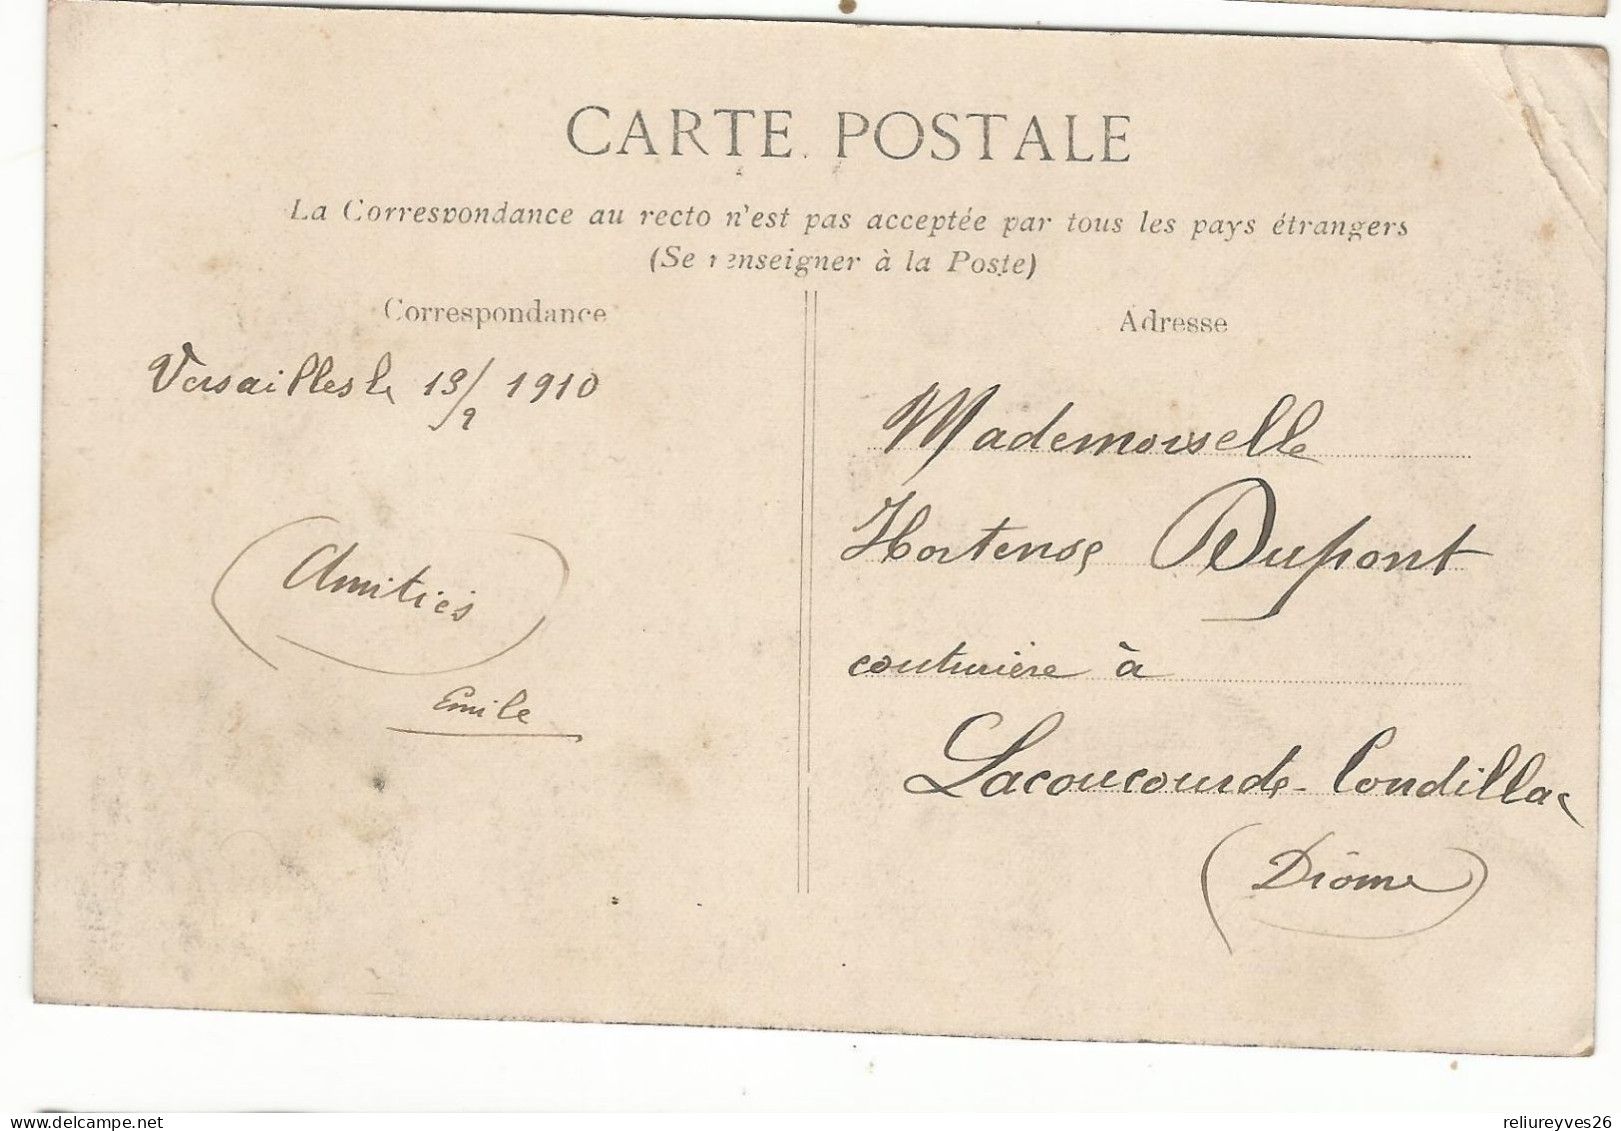 CARTE POSTALE
La Correspondance au recto n'est pas acceptée par tous les pays étrangers
(Se renseigner à la Poste)
Correspondance
Versailles le 13/9 1910
(Amitiés)
Emile
Adresse
Mademoiselle
Hortense Dupont
couturière à
Lacoucourde-Condillac
(Drôme)
delcampe.net
reliureyves26